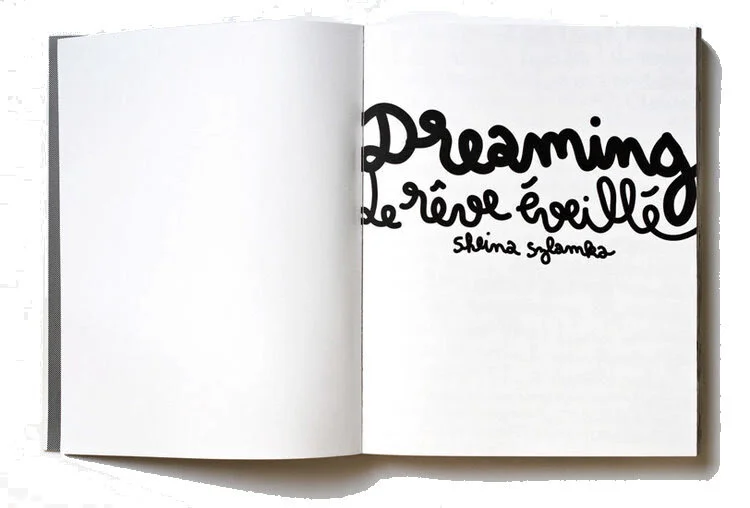 Dreaming
Le rêve éveillé
sheina szlamka